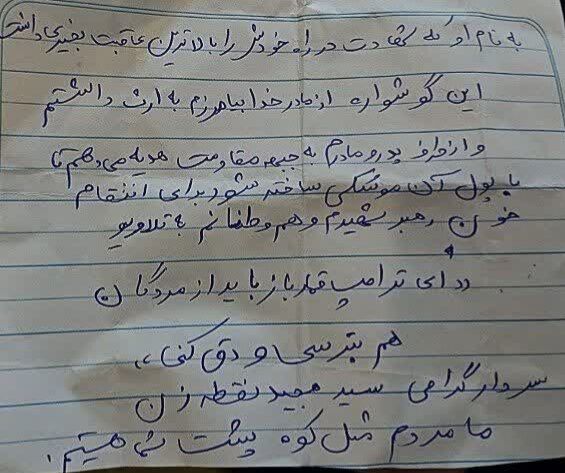 به نام او که شهادت در راه خودش را بالاترین عاقبت بخیری دانست
این گوشواره از مادر خدا بیامرزم به ارث داشتم
و از طرف پدر و مادرم به جبهه مقاومت هدیه می دهم تا
با پول آن موشکی ساخته شود برای انتقام
خون رهبر شهیدم و هم وطنانم به تلاویو
،، ای ترامپ قمار باز باید از مردگان
هم بترسی و دق کنی ،،
سردار گرامی سید مجید نقطه زن
ما مردم مثل کوه پشت شما هستیم.